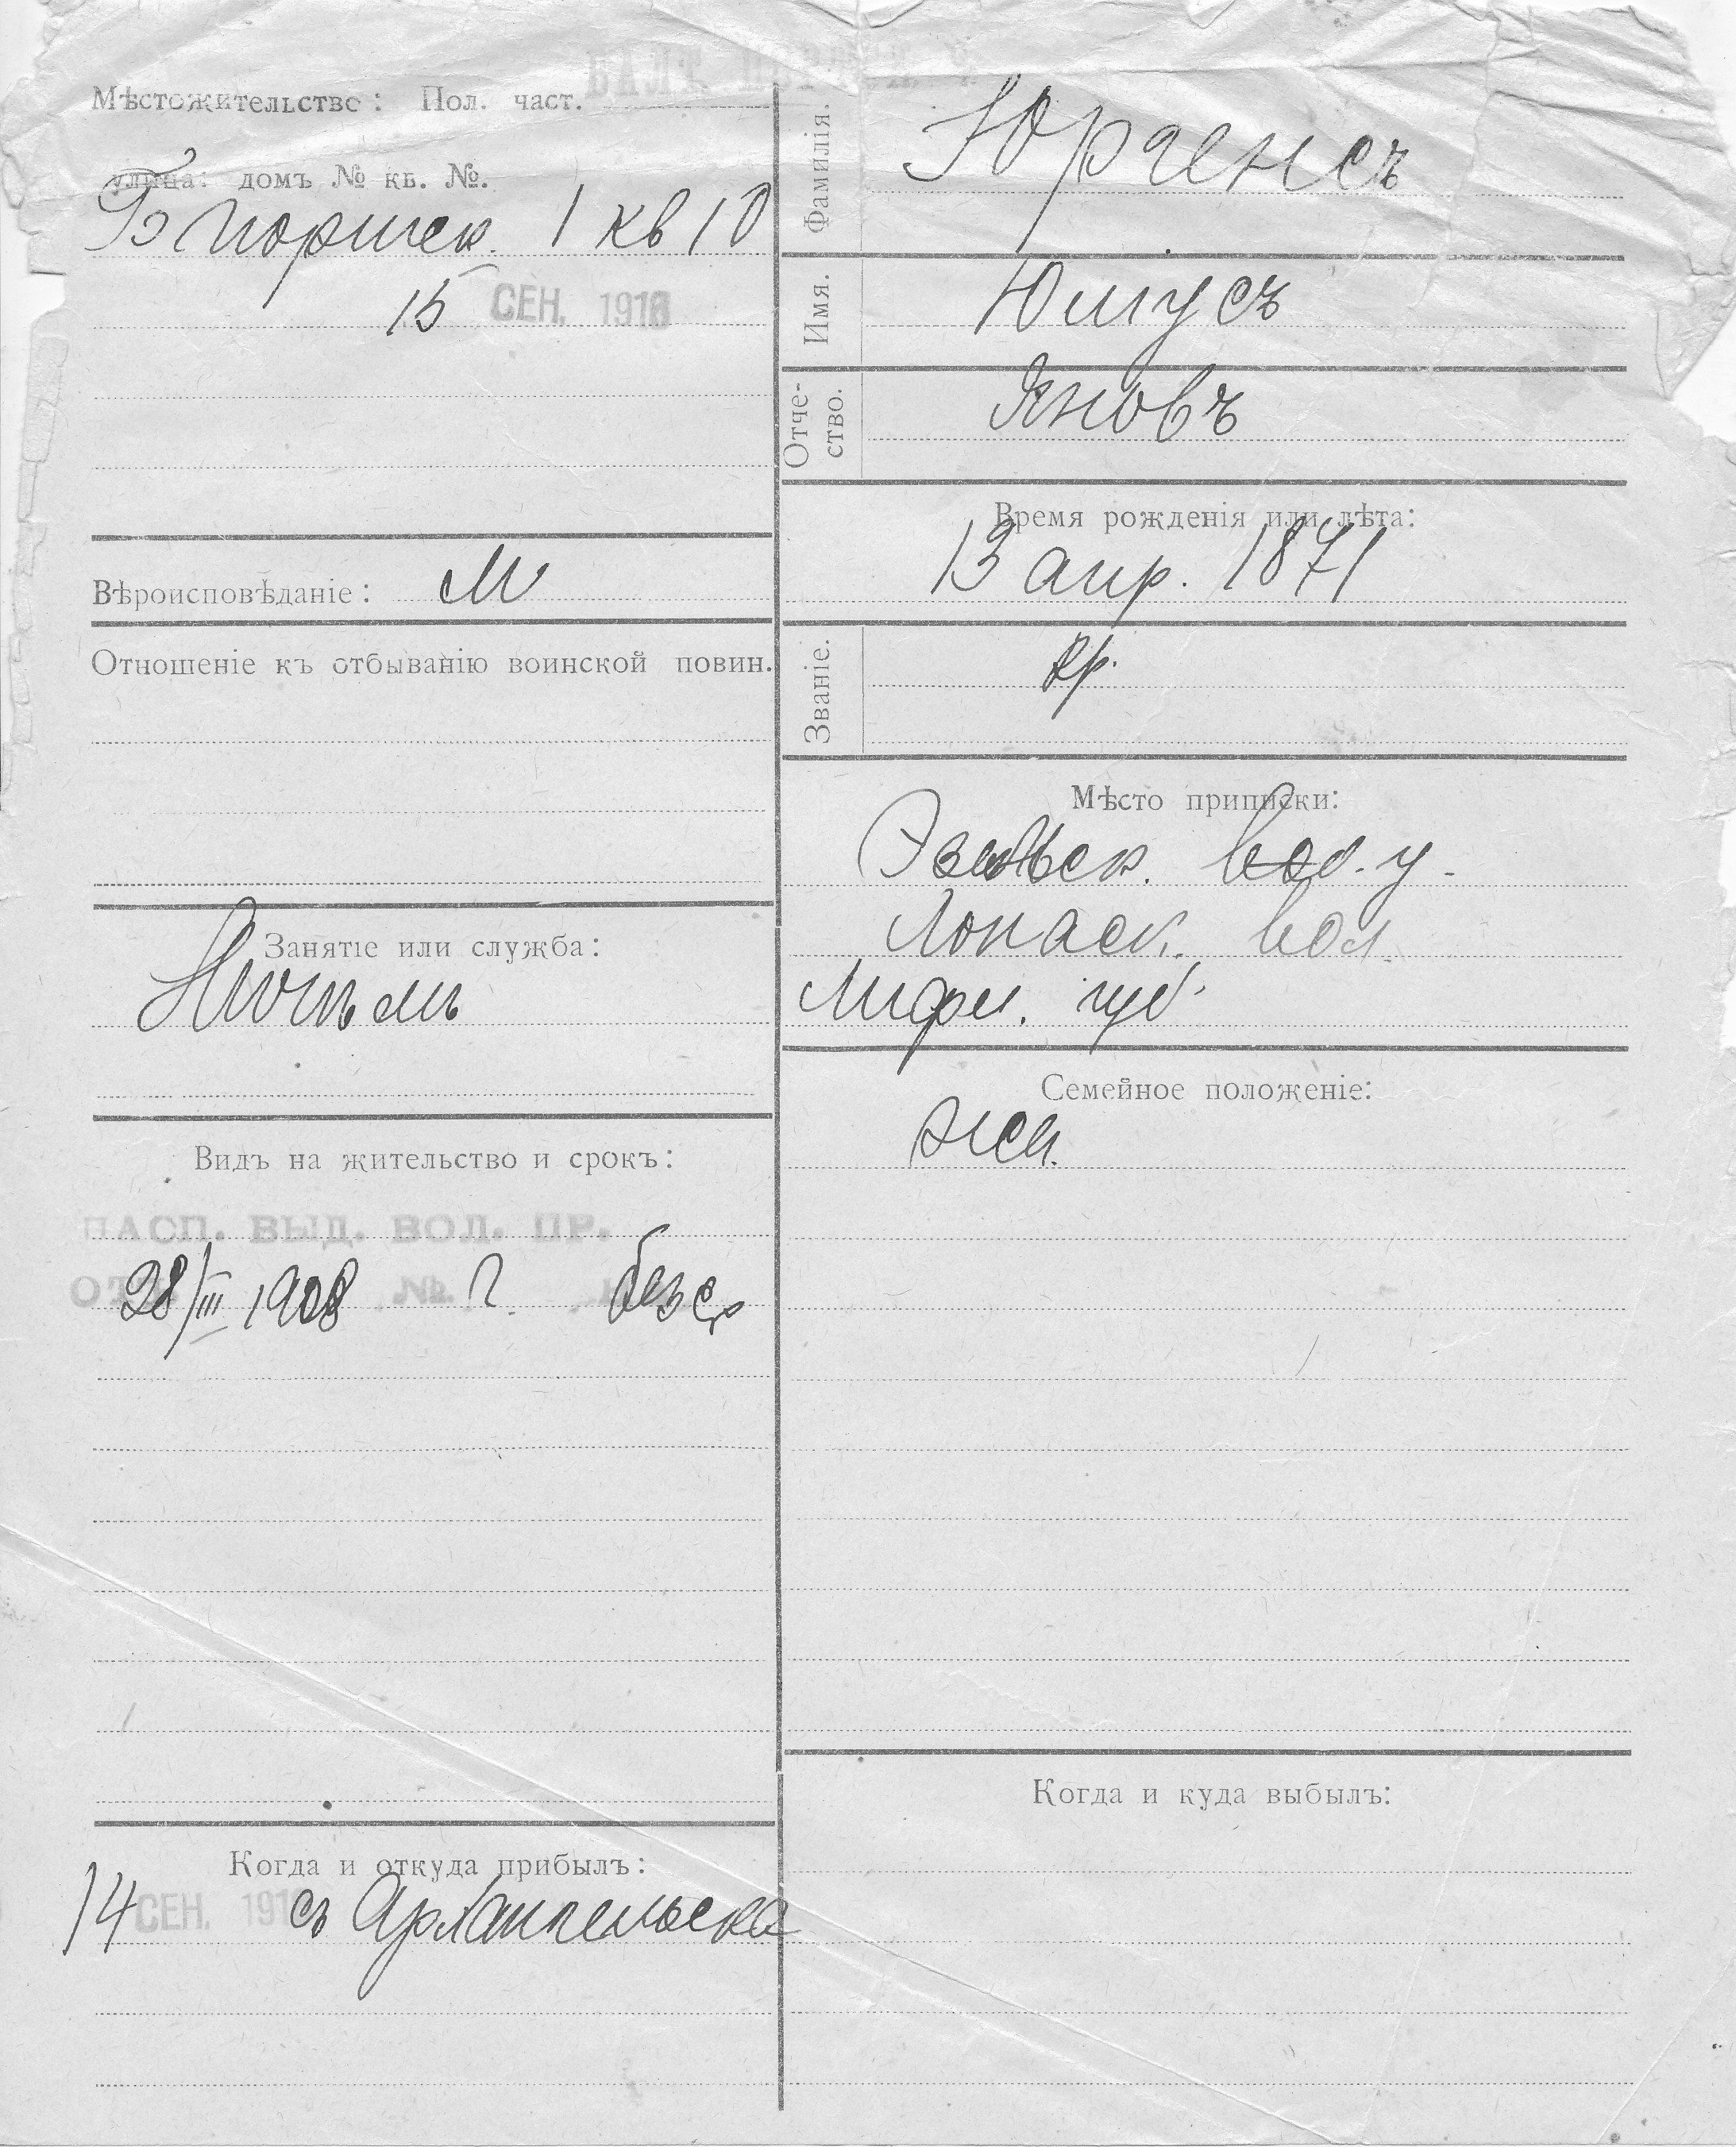 Мѣстожительство: Пол. част.
улица: домъ № кв. №.
1 кв 10
15 СЕН. 1916
Вѣроисповѣданіе: М
Отношеніе къ отбыванію воинской повин.
Занятіе или служба:
Видъ на жительство и срокъ:
ПАСП. ВЫД. ВОЛ. ПР.
28/III 1908 № г. безср
Когда и откуда прибылъ:
14 СЕН. 191 съ Архангельска
Фамилія. Юргенсъ
Имя. Юлiусъ
Отчество. Яновъ
Время рожденія или лѣта:
13 апр. 1871
Званіе. кр.
Мѣсто приписки:
Эзельск. у.
вол.
Лифл. губ.
Семейное положеніе:
жен.
Когда и куда выбылъ: